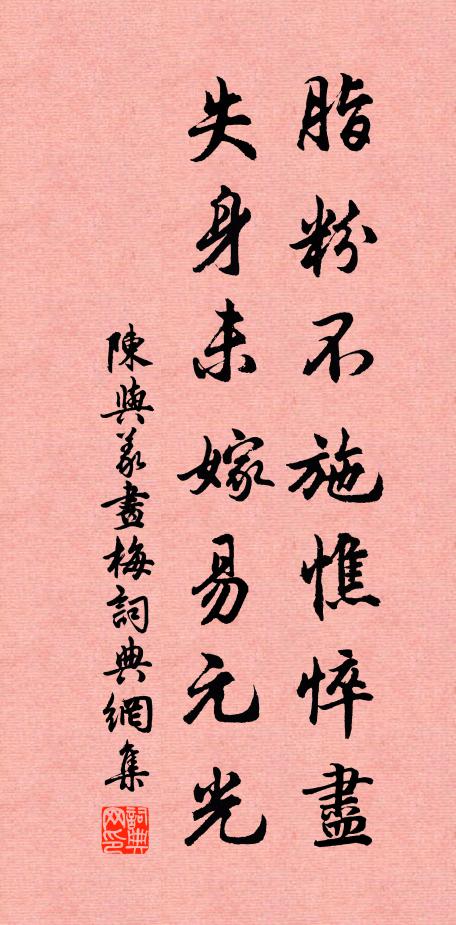 脂粉不施憔悴盡
失身未嫁易元光
陳與義畫梅詞典網集
詞典网印